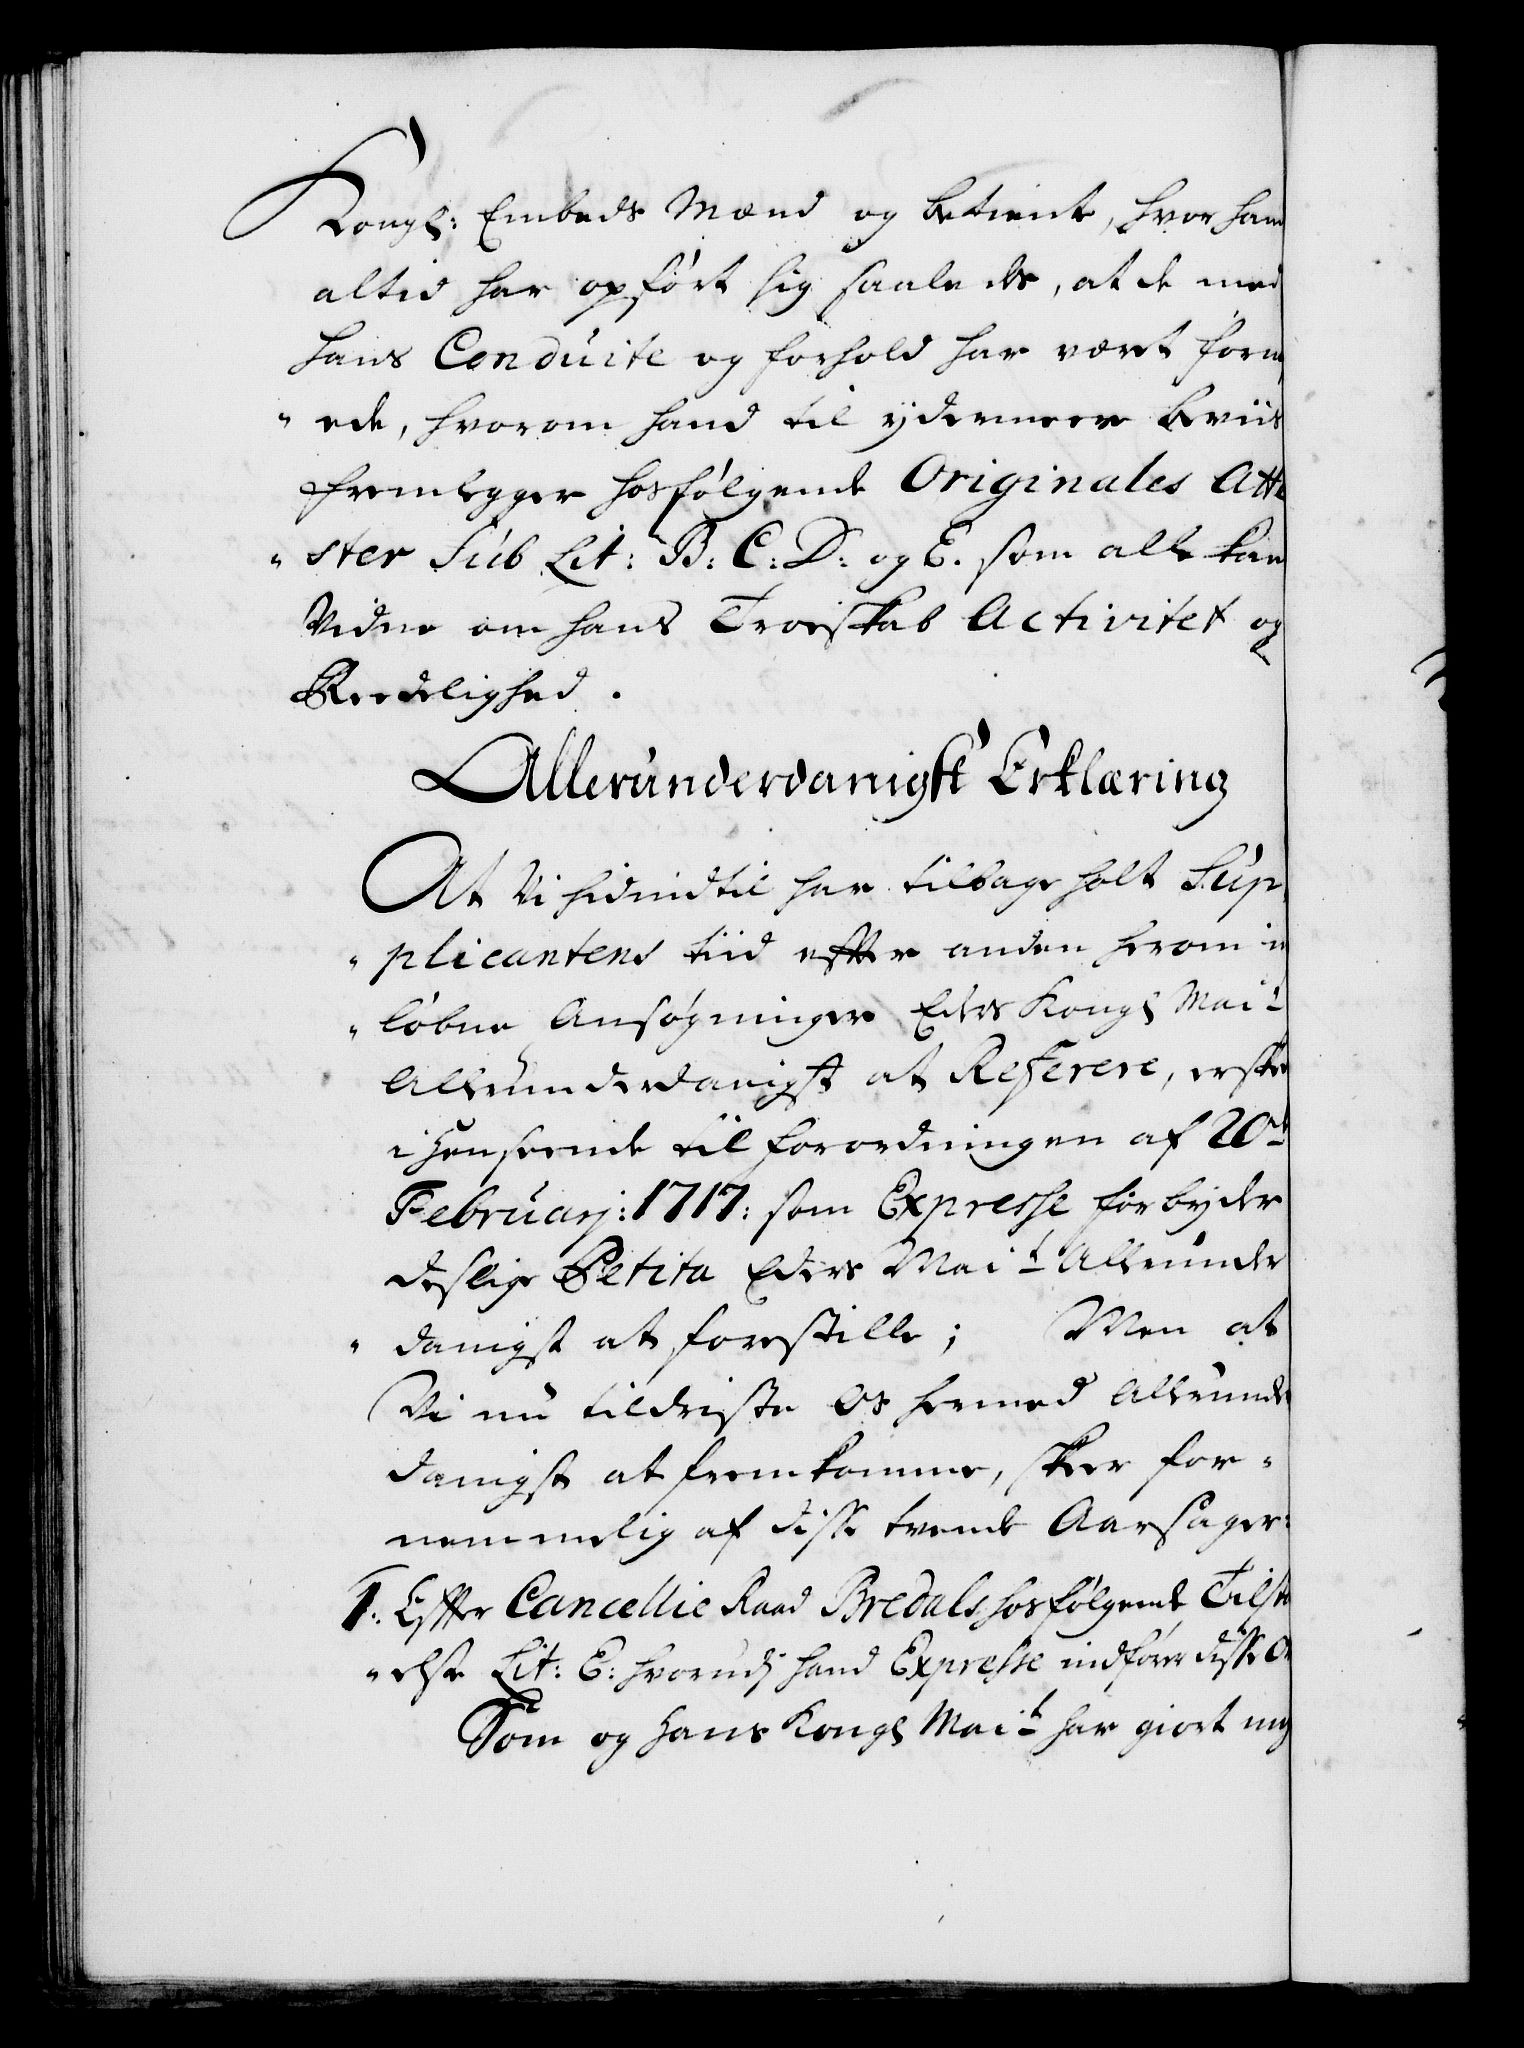 Kongl: Embeds Mænd og betiente, hvor hand
altid har opført sig saaledes, at de med
hans Conduite og forhold har været forn
" ede, hvorom hand til ydermeere beviis
fremlegger hosfølgende Originales Atte
" ster Sub Lit: B: C: D: og E. som alle kan
Vidne om hans Troeskab Activitet og
Reedelighed.
Allerunderdanigst Erklæring
At Vi hidindtil har tilbage holt Sup
" plicantens tiid effter anden herom in
" løbne Ansøgninger Eders Kongl Mait
Allerunderdanigst at Referere, er skee
i henseende til forordningen af 20de
Februarj: 1717: som Expresse forbyder
deslige Petita Eders Mait Allerunder
" danigst at forestille; Men at
Vi nu tildriste os hermed Allerunder
danigst at fremkomme, skeer for-
nemmelig af disse trende Aarsager:
1: Effter Cancellie Raad Bredals hosfølgende Tilst
" else Lit: E: hvorudj hand Expresse indfører disse Or
Som og Hans Kongl Mait har giort mig